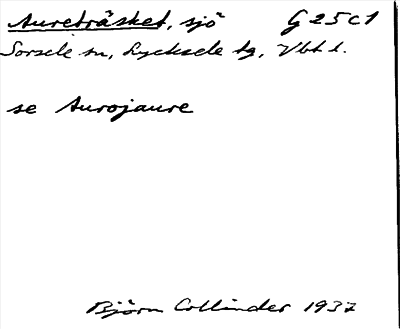 Aureträsket, sjö G 25 c 1
Sorsele sn, Lycksele tg, Vbtt l.
se Aurojaure
Björn Collinder 1937